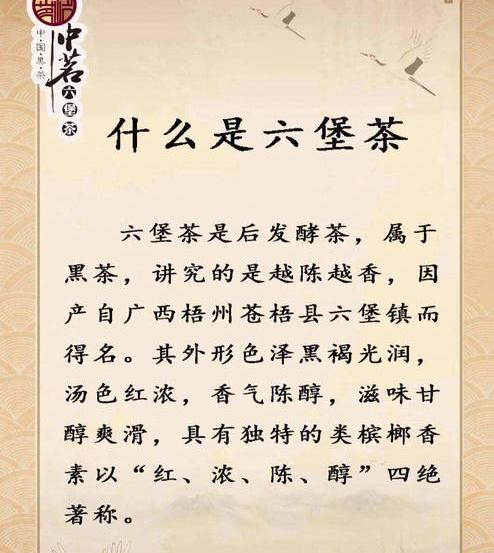 中·国·黑·茶
中茗
六堡茶
什么是六堡茶
六堡茶是后发酵茶，属于
黑茶，讲究的是越陈越香，因
产自广西梧州苍梧县六堡镇而
得名。其外形色泽黑褐光润，
汤色红浓，香气陈醇，滋味甘
醇爽滑，具有独特的类槟榔香
素以“红、浓、陈、醇”四绝
著称。